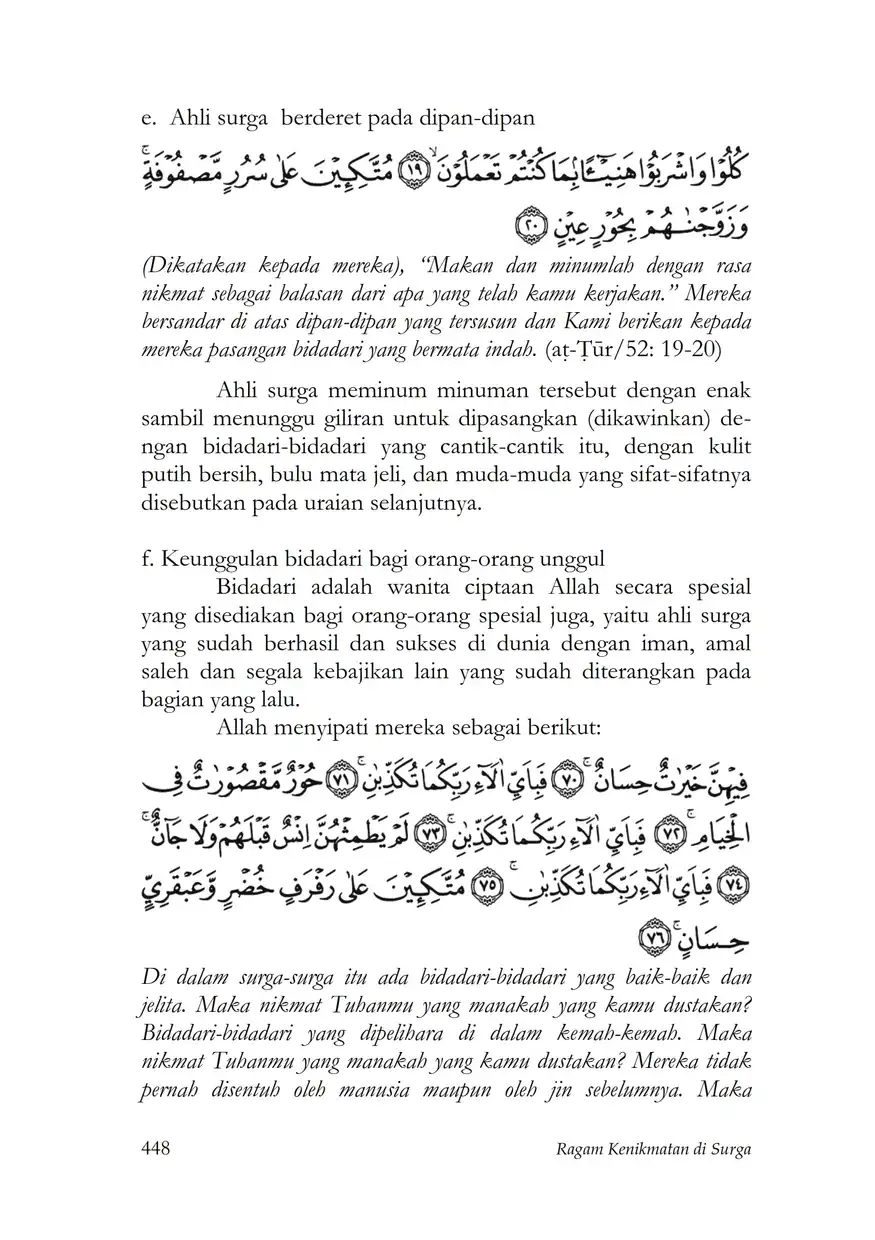 e. Ahli surga berderet pada dipan-dipan
كُلُوْا وَاشْرَبُوْا هَنِيْۤـًٔا ۢبِمَا كُنْتُمْ تَعْمَلُوْنَۙ ﴿١٩﴾ مُتَّكِـِٕيْنَ عَلٰى سُرُرٍ مَّصْفُوْفَةٍۚ
وَزَوَّجْنٰهُمْ بِحُوْرٍ عِيْنٍ ﴿٢٠﴾
(Dikatakan kepada mereka), “Makan dan minumlah dengan rasa
nikmat sebagai balasan dari apa yang telah kamu kerjakan.” Mereka
bersandar di atas dipan-dipan yang tersusun dan Kami berikan kepada
mereka pasangan bidadari yang bermata indah. (aṭ-Ṭūr/52: 19-20)
Ahli surga meminum minuman tersebut dengan enak
sambil menunggu giliran untuk dipasangkan (dikawinkan) de-
ngan bidadari-bidadari yang cantik-cantik itu, dengan kulit
putih bersih, bulu mata jeli, dan muda-muda yang sifat-sifatnya
disebutkan pada uraian selanjutnya.
f. Keunggulan bidadari bagi orang-orang unggul
Bidadari adalah wanita ciptaan Allah secara spesial
yang disediakan bagi orang-orang spesial juga, yaitu ahli surga
yang sudah berhasil dan sukses di dunia dengan iman, amal
saleh dan segala kebajikan lain yang sudah diterangkan pada
bagian yang lalu.
Allah menyipati mereka sebagai berikut:
فِيْهِنَّ خَيْرٰتٌ حِسَانٌۚ ﴿٧٠﴾ فَبِاَيِّ اٰلَاۤءِ رَبِّكُمَا تُكَذِّبٰنِۚ ﴿٧١﴾ حُوْرٌ مَّقْصُوْرٰتٌ فِى
الْخِيَامِۚ ﴿٧٢﴾ فَبِاَيِّ اٰلَاۤءِ رَبِّكُمَا تُكَذِّبٰنِۚ ﴿٧٣﴾ لَمْ يَطْمِثْهُنَّ اِنْسٌ قَبْلَهُمْ وَلَا جَاۤنٌّۚ
﴿٧٤﴾ فَبِاَيِّ اٰلَاۤءِ رَبِّكُمَا تُكَذِّبٰنِۚ ﴿٧٥﴾ مُتَّكِـِٕيْنَ عَلٰى رَفْرَفٍ خُضْرٍ وَّعَبْقَرِيٍّ
حِسَانٍۚ ﴿٧٦﴾
Di dalam surga-surga itu ada bidadari-bidadari yang baik-baik dan
jelita. Maka nikmat Tuhanmu yang manakah yang kamu dustakan?
Bidadari-bidadari yang dipelihara di dalam kemah-kemah. Maka
nikmat Tuhanmu yang manakah yang kamu dustakan? Mereka tidak
pernah disentuh oleh manusia maupun oleh jin sebelumnya. Maka
448 Ragam Kenikmatan di Surga